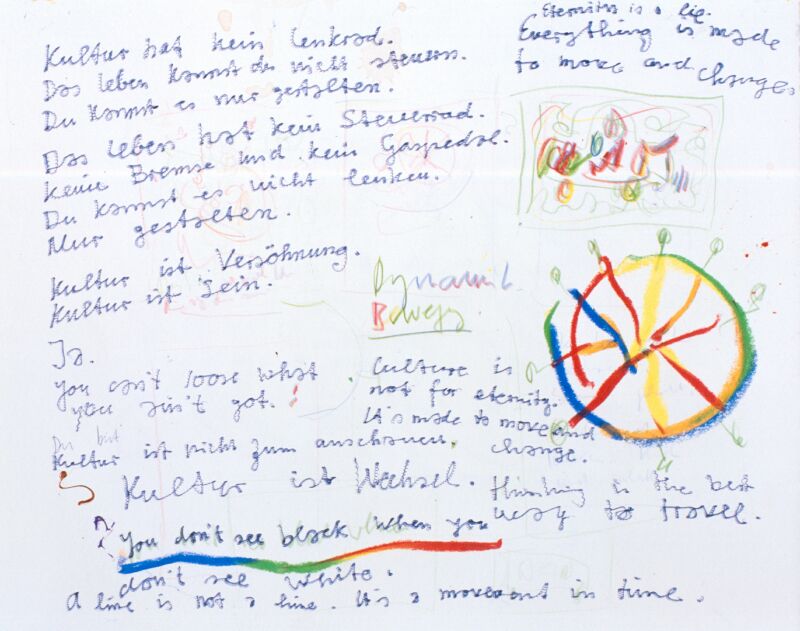 Kultur hat kein Lenkrad.
Das Leben kannst du nicht steuern.
Du kannst es nur gestalten.
Das Leben hat kein Steuerrad.
Keine Bremse und kein Gaspedal.
Du kannst es nicht lenken.
Nur gestalten.
Kultur ist Versöhnung.
Kultur ist Sein.
Ja.
you can't loose what
you ain't got.
Du bist
Kultur ist nicht zum anschauen.
Kultur ist Wechsel.
You don't see black when you
don't see white.
A line is not a line. It's a movement in time.
Eternity is a lie.
Everything is made
to move and changes
Dynamik
Beweg
Culture is
not for eternity.
It's made to move and
change.
thinking is the best
way to travel.